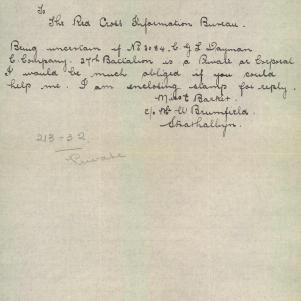 To
The Red Cross Information Bureau.
Being uncertain if No 3084. C G L Dayman
C Company. 27th Battalion is a Private or Corporal
I would be much obliged if you could
help me. I am enclosing stamp for reply.
Miss E Barker.
c/o Mr W Brumfield.
Strathalbyn.
213-32
Private